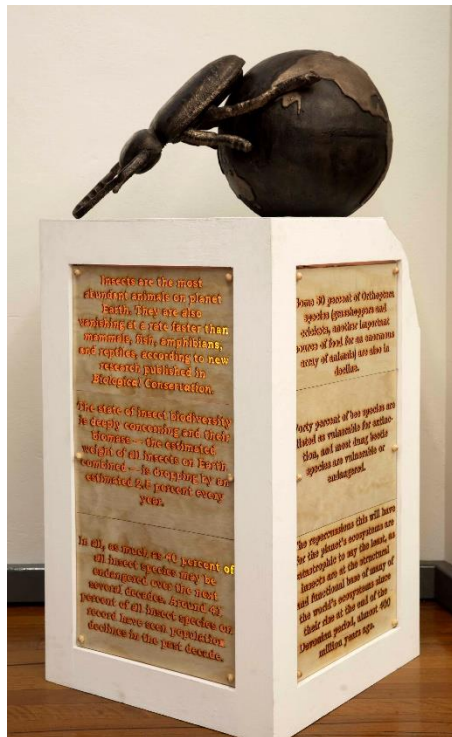 Insects are the most
abundant animals on planet
Earth. They are also
vanishing at a rate faster than
mammals, fish, amphibians,
and reptiles, according to new
research published in
Biological Conservation.
The state of insect biodiversity
is deeply concerning and their
biomass — the estimated
weight of all insects on Earth
combined — is dropping by an
estimated 2.5 percent every
year.
In all, as much as 40 percent of
all insect species may be
endangered over the next
several decades. Around 41
percent of all insect species on
record have seen population
declines in the past decade.
Some 30 percent of Orthoptera
species (grasshoppers and
crickets, another important
source of food for an enormous
array of animals) are also in
decline.
Forty percent of bee species are
listed as vulnerable for extinc-
tion, and most dung beetle
species are vulnerable or
endangered.
The repercussions this will have
for the planet's ecosystems are
catastrophic to say the least, as
insects are at the structural
and functional base of many of
the world's ecosystems since
their rise at the end of the
Devonian period, almost 400
million years ago.